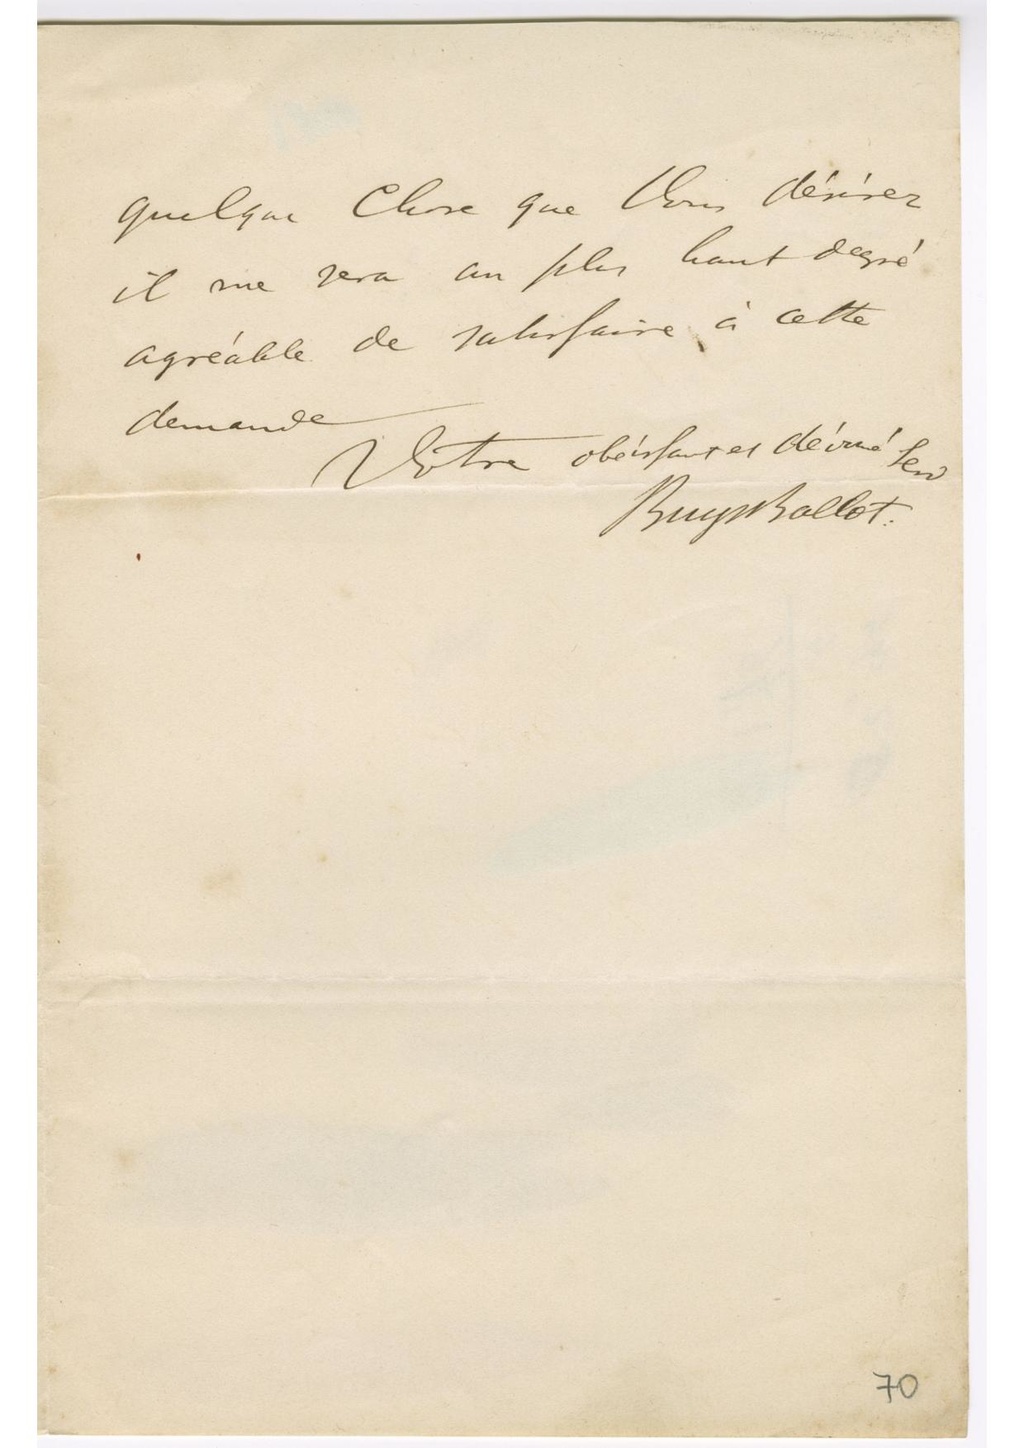 quelque Chose que Vous désirez
il me sera au plus haut degré
agréable de satisfaire à cette
demande
Votre obéissant et dévoué Serv
BuysBallot.
70